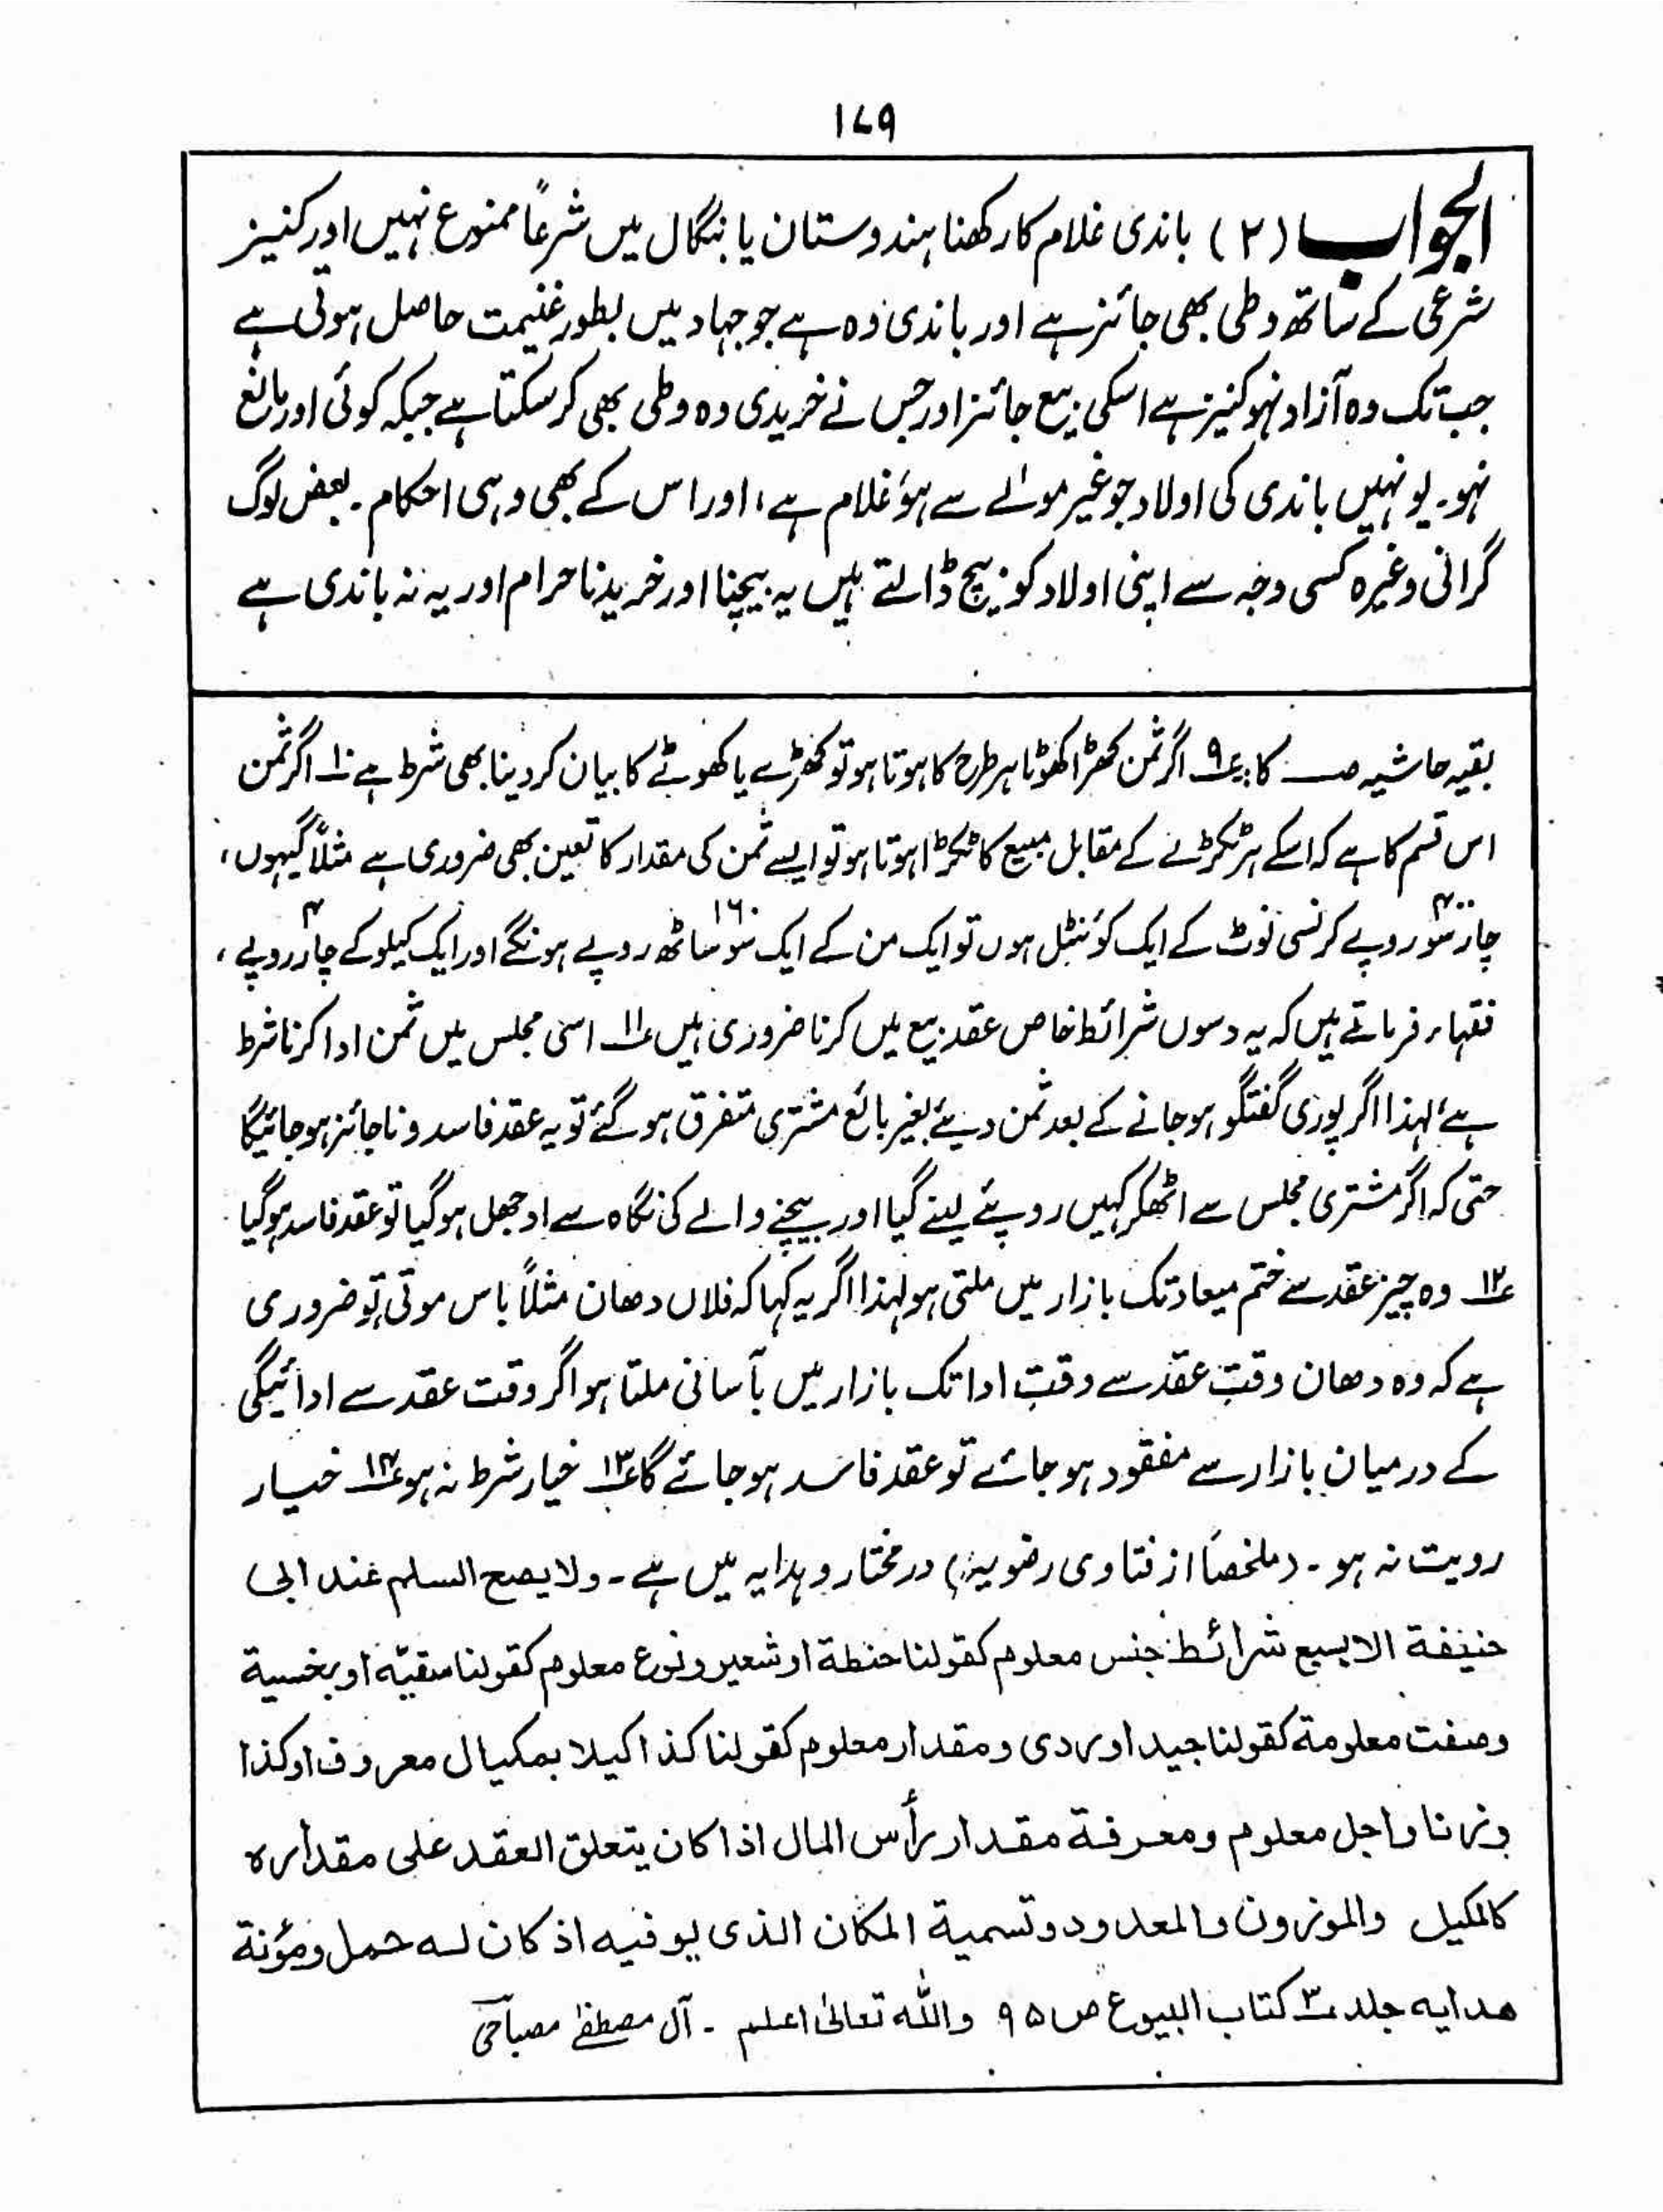 ۱۷۹
الجواب (۲) باندی غلام کا رکھنا ہندوستان یا بنگال میں شرعاً ممنوع نہیں اور کنیز
شرعی کے ساتھ وطی بھی جائز ہے اور باندی وہ ہے جو جہاد میں بطور غنیمت حاصل ہوتی ہے
جب تک وہ آزاد نہو کنیز ہے اسکی بیع جائز اور جس نے خریدی وہ وطی بھی کرسکتا ہے جبکہ کوئی اور مانع
نہو۔ یونہیں باندی کی اولاد جو غیر مولےٰ سے ہو غلام ہے، اور اس کے بھی وہی احکام۔ بعض لوگ
گرانی وغیرہ کسی وجہ سے اپنی اولاد کو بیچ ڈالتے ہیں یہ بیچنا اور خریدنا حرام اور یہ نہ باندی ہے
بقیہ حاشیہ صـ کا: ع۹ اگر ثمن کھڑا کھوٹا ہر طرح کا ہوتا ہو تو کھڑے یا کھوٹے کا بیان کردینا بھی شرط ہے ۱۰ اگر ثمن
اس قسم کا ہے کہ اسکے ہر ٹکڑے کے مقابل مبیع کا ٹکڑا ہوتا ہو تو ایسے ثمن کی مقدار کا تعین بھی ضروری ہے مثلاً گیہوں،
چار سو ۴۰۰ روپے کرنسی نوٹ کے ایک کوئنٹل ہوں تو ایک من کے ایک سو ساٹھ ۱۶۰ روپے ہونگے اور ایک کیلو کے چار ۴ روپے،
فقہاء فرماتے ہیں کہ یہ دسوں شرائط خاص عقد بیع میں کرنا ضروری ہیں ع۱۱ اسی مجلس میں ثمن ادا کرنا شرط
ہے، لہذا اگر پوری گفتگو ہو جانے کے بعد ثمن دیئے بغیر بائع مشتری متفرق ہو گئے تو یہ عقد فاسد و ناجائز ہو جائیگا
حتی کہ اگر مشتری مجلس سے اٹھکر کہیں روپئے لینے گیا اور بیچنے والے کی نگاہ سے اوجھل ہوگیا تو عقد فاسد ہوگیا۔
ع۱۲ وہ چیز عقد سے ختم میعاد تک بازار میں ملتی ہو لہذا اگر یہ کہا کہ فلاں دھان مثلاً باس موتی، تو ضروری
ہے کہ وہ دھان وقتِ عقد سے وقتِ ادا تک بازار میں بآسانی ملتا ہو اگر وقت عقد سے ادائیگی
کے درمیان بازار سے مفقود ہو جائے تو عقد فاسد ہو جائے گا ع۱۳ خیار شرط نہ ہو ع۱۴ خیار
رویت نہ ہو۔ (ملخصاً از فتاوی رضویہ) درمختار و ہدایہ میں ہے۔ ولا یصح السلم عند ابی
حنیفة الا بسبع شرائط جنس معلوم کقولنا حنطة او شعیر ونوع معلوم کقولنا سقیّة او بخسیة
وصفت معلومة کقولنا جید او ردی ومقدار معلوم کقولنا کذا کیلا بمکیال معروف او کذا
وزنا واجل معلوم ومعرفة مقدار رأس المال اذا کان یتعلق العقد علی مقدارہ
کالمکیل والموزون والمعدود وتسمیة المکان الذی یوفیہ اذ کان لہ حمل ومؤنة
ھدایہ جلد ۳ کتاب البیوع ص ۹۵ واللہ تعالیٰ اعلم ۔ آل مصطفےٰ مصباحی